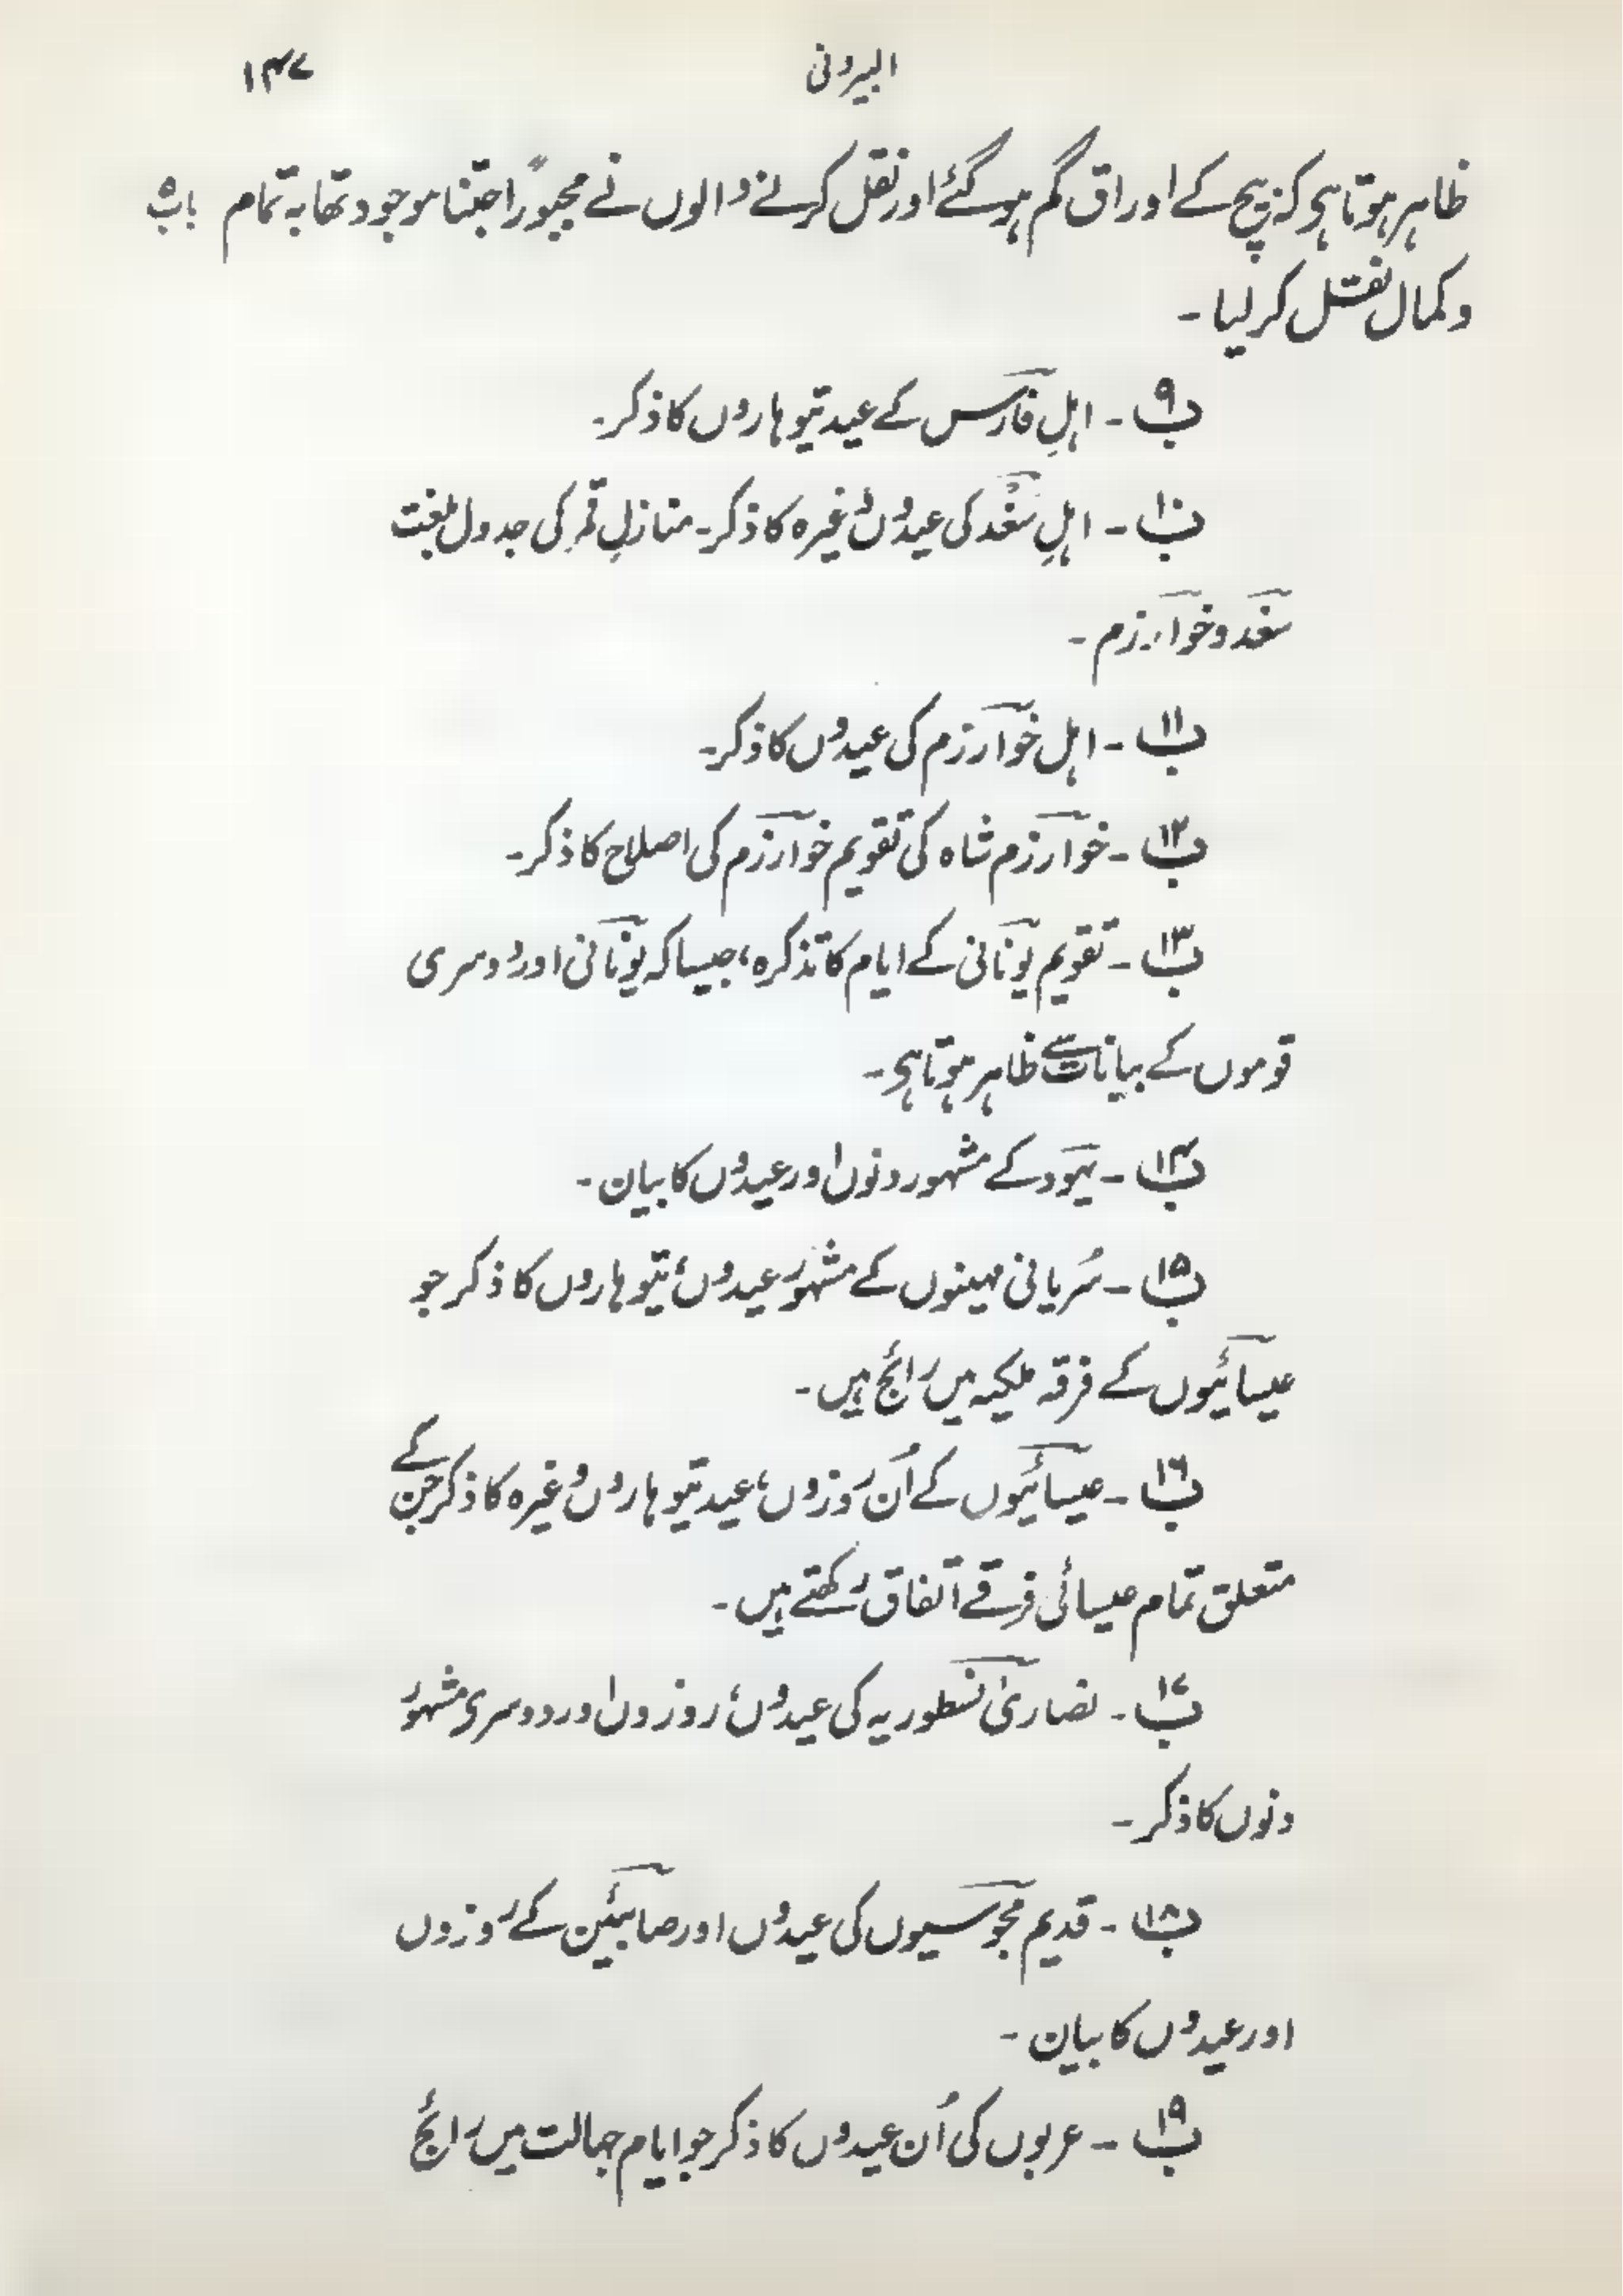 البیرونی ۱۴۷
ظاہر ہوتا ہی کہ بیچ کے اوراق گم ہو گئے اور نقل کرنے والوں نے مجبوراً جتنا موجود تھا بہ تمام باب ۵
و کمال نقل کر لیا ۔
ب ۹ ۔ اہلِ فارس کے عید تیوہاروں کا ذکر ۔
ب ۱۰ ۔ اہلِ سُغْد کی عیدوں وغیرہ کا ذکر ۔ منازلِ قمر کی جدول بلغت
سغد و خوارزم ۔
ب ۱۱ ۔ اہل خوارزم کی عیدوں کا ذکر ۔
ب ۱۲ ۔ خوارزم شاہ کی تقویم خوارزم کی اصلاح کا ذکر ۔
ب ۱۳ ۔ تقویم یونانی کے ایام کا تذکرہ، جیسا کہ یونانی اور دوسری
قوموں کے بیانات سے ظاہر ہوتا ہی ۔
ب ۱۴ ۔ یہود کے مشہور دنوں اور عیدوں کا بیان ۔
ب ۱۵ ۔ سُریانی مہینوں کے مشہور عیدوں، تیوہاروں کا ذکر جو
عیسائیوں کے فرقہ ملکیہ میں رائج ہیں ۔
ب ۱۶ ۔ عیسائیوں کے اُن روزوں، عید تیوہاروں وغیرہ کا ذکر جن کے
متعلق تمام عیسائی فرقے اتفاق رکھتے ہیں ۔
ب ۱۷ ۔ نصاریٰ نسطوریہ کی عیدوں، روزوں اور دوسری مشہور
دنوں کا ذکر ۔
ب ۱۸ ۔ قدیم مجوسیوں کی عیدوں اور صابئین کے روزوں
اور عیدوں کا بیان ۔
ب ۱۹ ۔ عربوں کی اُن عیدوں کا ذکر جو ایام جہالت میں رائج